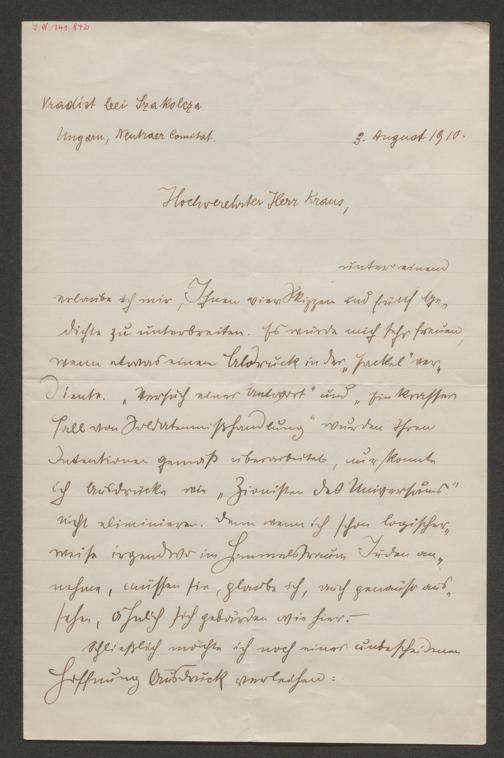 I.N. 141.842
Vradist bei Szakolcza
Ungarn, Neutraer Comitat.
3. August 1910.
Hochverehrter Herr Kraus,
unter einem
erlaube ich mir, Ihnen vier Skizzen und fünf Ge-
dichte zu unterbreiten. Es würde mich sehr freuen,
wenn etwas einen Abdruck in der „Fackel" ver-
diente. „Versuch einer Antwort" und „Ein krasser
Fall von Soldatenmisshandlung" wurden Ihren
Intentionen gemäß überarbeitet, nur konnte
ich Ausdrücke wie „Zionisten des Universums"
nicht eliminieren. Denn wenn ich schon logischer-
weise irgendwo im Himmelsraum Juden an-
nehme, müssen sie, glaube ich, auch genauso aus-
sehen, ähnlich sich gebärden wie hier.–
Schließlich möchte ich noch einer unbescheidenen
Hoffnung Ausdruck verleihen: